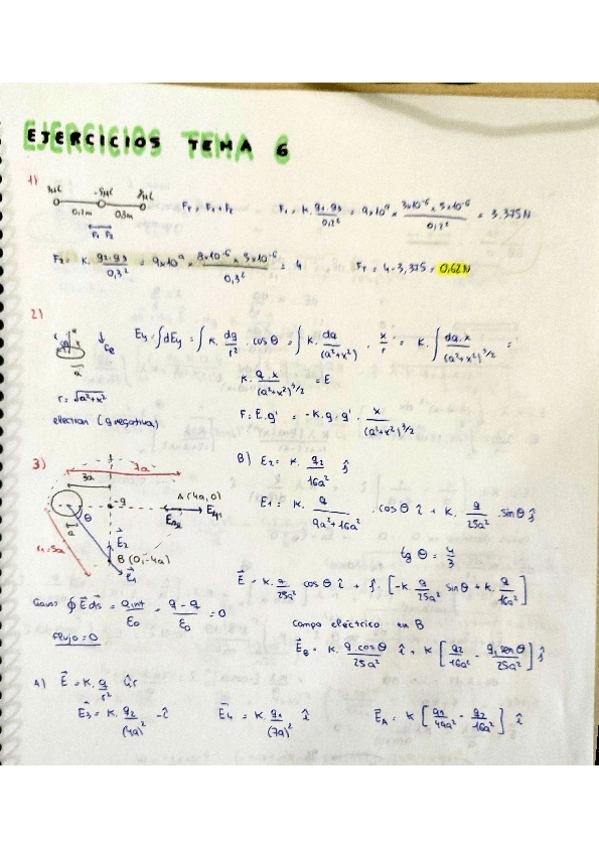 EJERCICIOS TEMA 6
1)
-5μC
0,2m 0,3m
F₁ F₂
F_T = F₁ + F₂ F₁ = K · q₁·q₃/0,2² = 9×10⁹ × 3×10⁻⁶ × 5×10⁻⁶/0,2² = 3,375N
F₂ = K · q₂·q₃/0,3² = 9×10⁹ × 8×10⁻⁶ × 5×10⁻⁶/0,3² = 4 F_T = 4 - 3,375 = 0,62N
2)
E_y = ∫dE_y = ∫ K · dq/r² · cos θ = ∫ K · dq/(a²+x²) · x/r = K · ∫ dq·x/(a²+x²)^3/2 =
K · q·x/(a²+x²)^3/2 = E
r = √a²+x²
electron (q negativa) F = E·q' = -K·q·q' · x/(a²+x²)^3/2
3)
7a
3a
-q
A (4a,0)
θ
r₁=5a
E₂
B (0,-4a)
E₁
B) E₂ = K · q₂/16a² ĵ
E₁ = K · q/9a²+16a² · cos θ î + K · q/25a² · sin θ ĵ
tg θ = 4/3
E = K · q/25a² cos θ î + ĵ · [-K q/25a² sin θ + K · q/16a²]
Gauss ∮ E ds = Q int/ε₀ = q-q/ε₀ = 0
flujo = 0
Campo eléctrico en B
E_B = K · q·cos θ/25a² î + K [q₂/16a² - q₁ sen θ/25a²] ĵ
A) E = K · q/r² ûr
E₃ = K · q₂/(4a)² -î E₄ = K · q₁/(7a)² î E_A = K [q₁/49a² - q₂/16a²] î